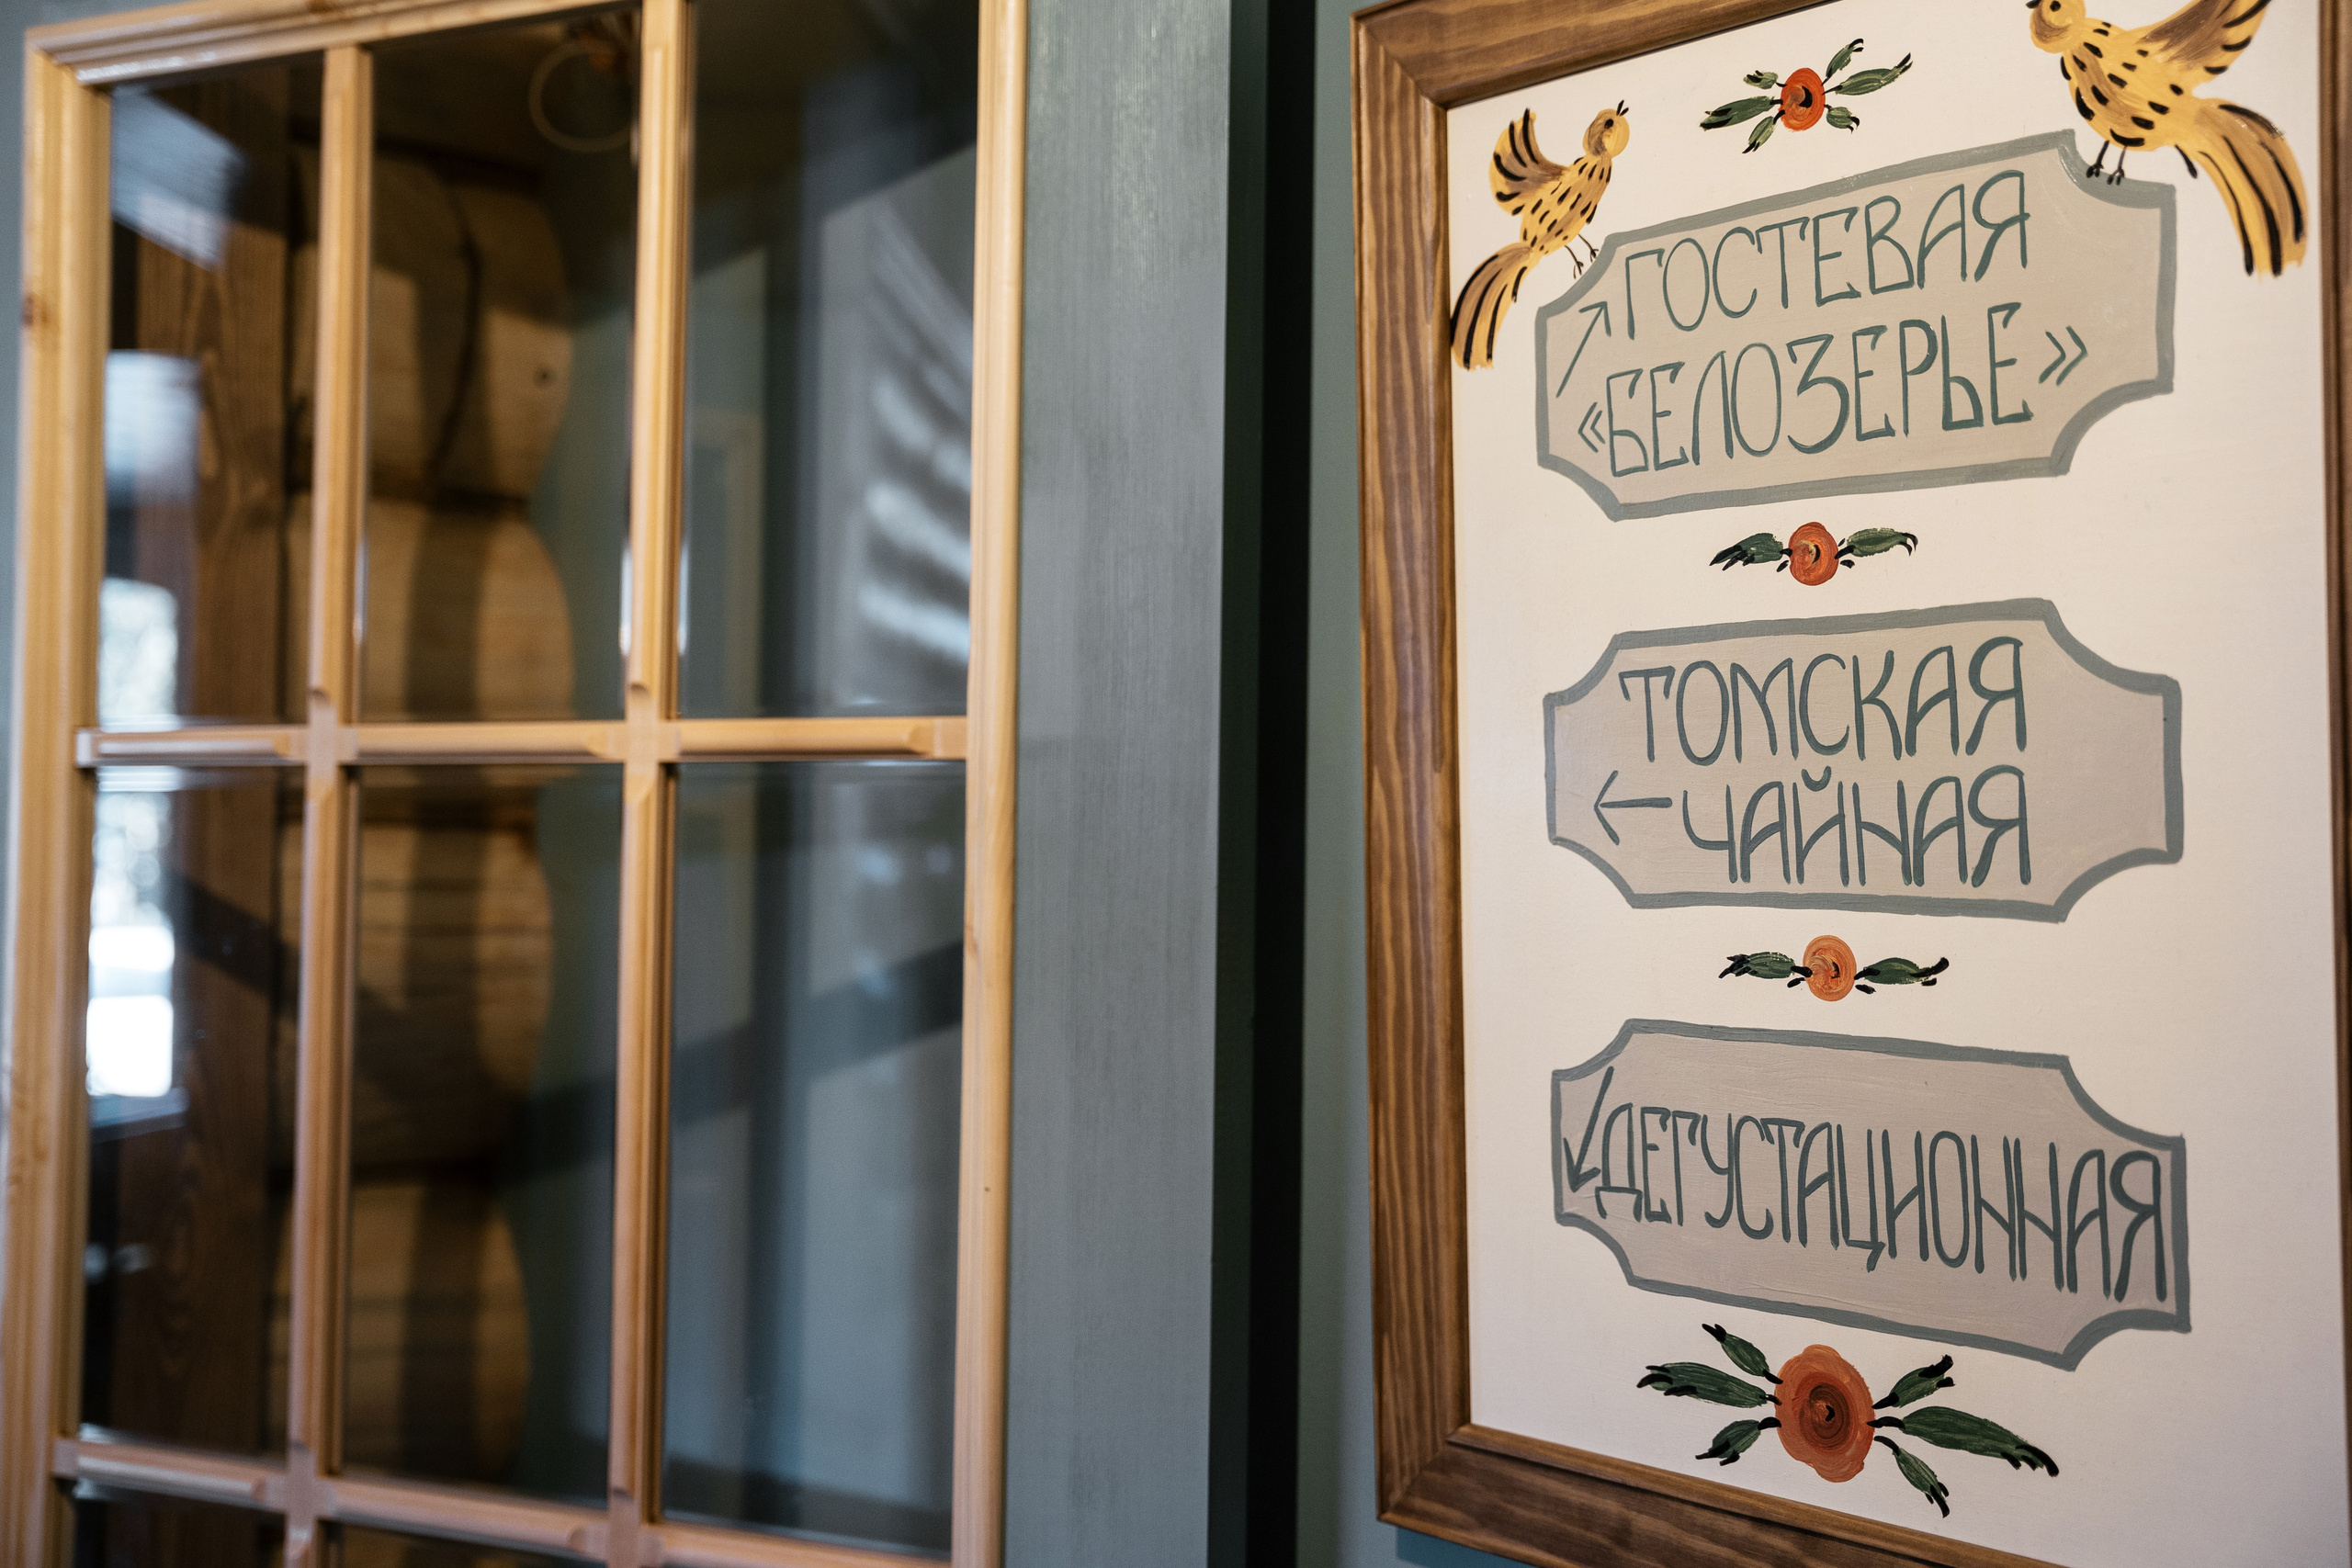 ↗ ГОСТЕВАЯ
«БЕЛОЗЕРЬЕ»
ТОМСКАЯ
← ЧАЙНАЯ
↙ ДЕГУСТАЦИОННАЯ